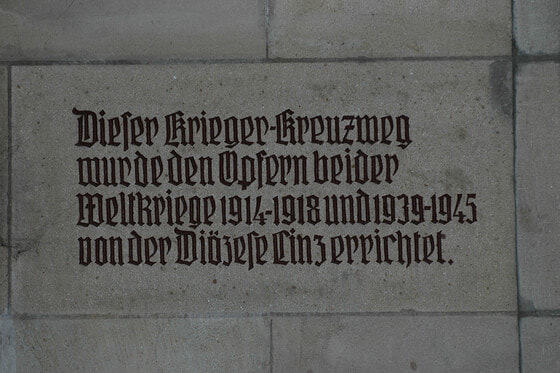 Dieser Krieger-Kreuzweg
wurde den Opfern beider
Weltkriege 1914-1918 und 1939-1945
von der Diözese Linz errichtet.